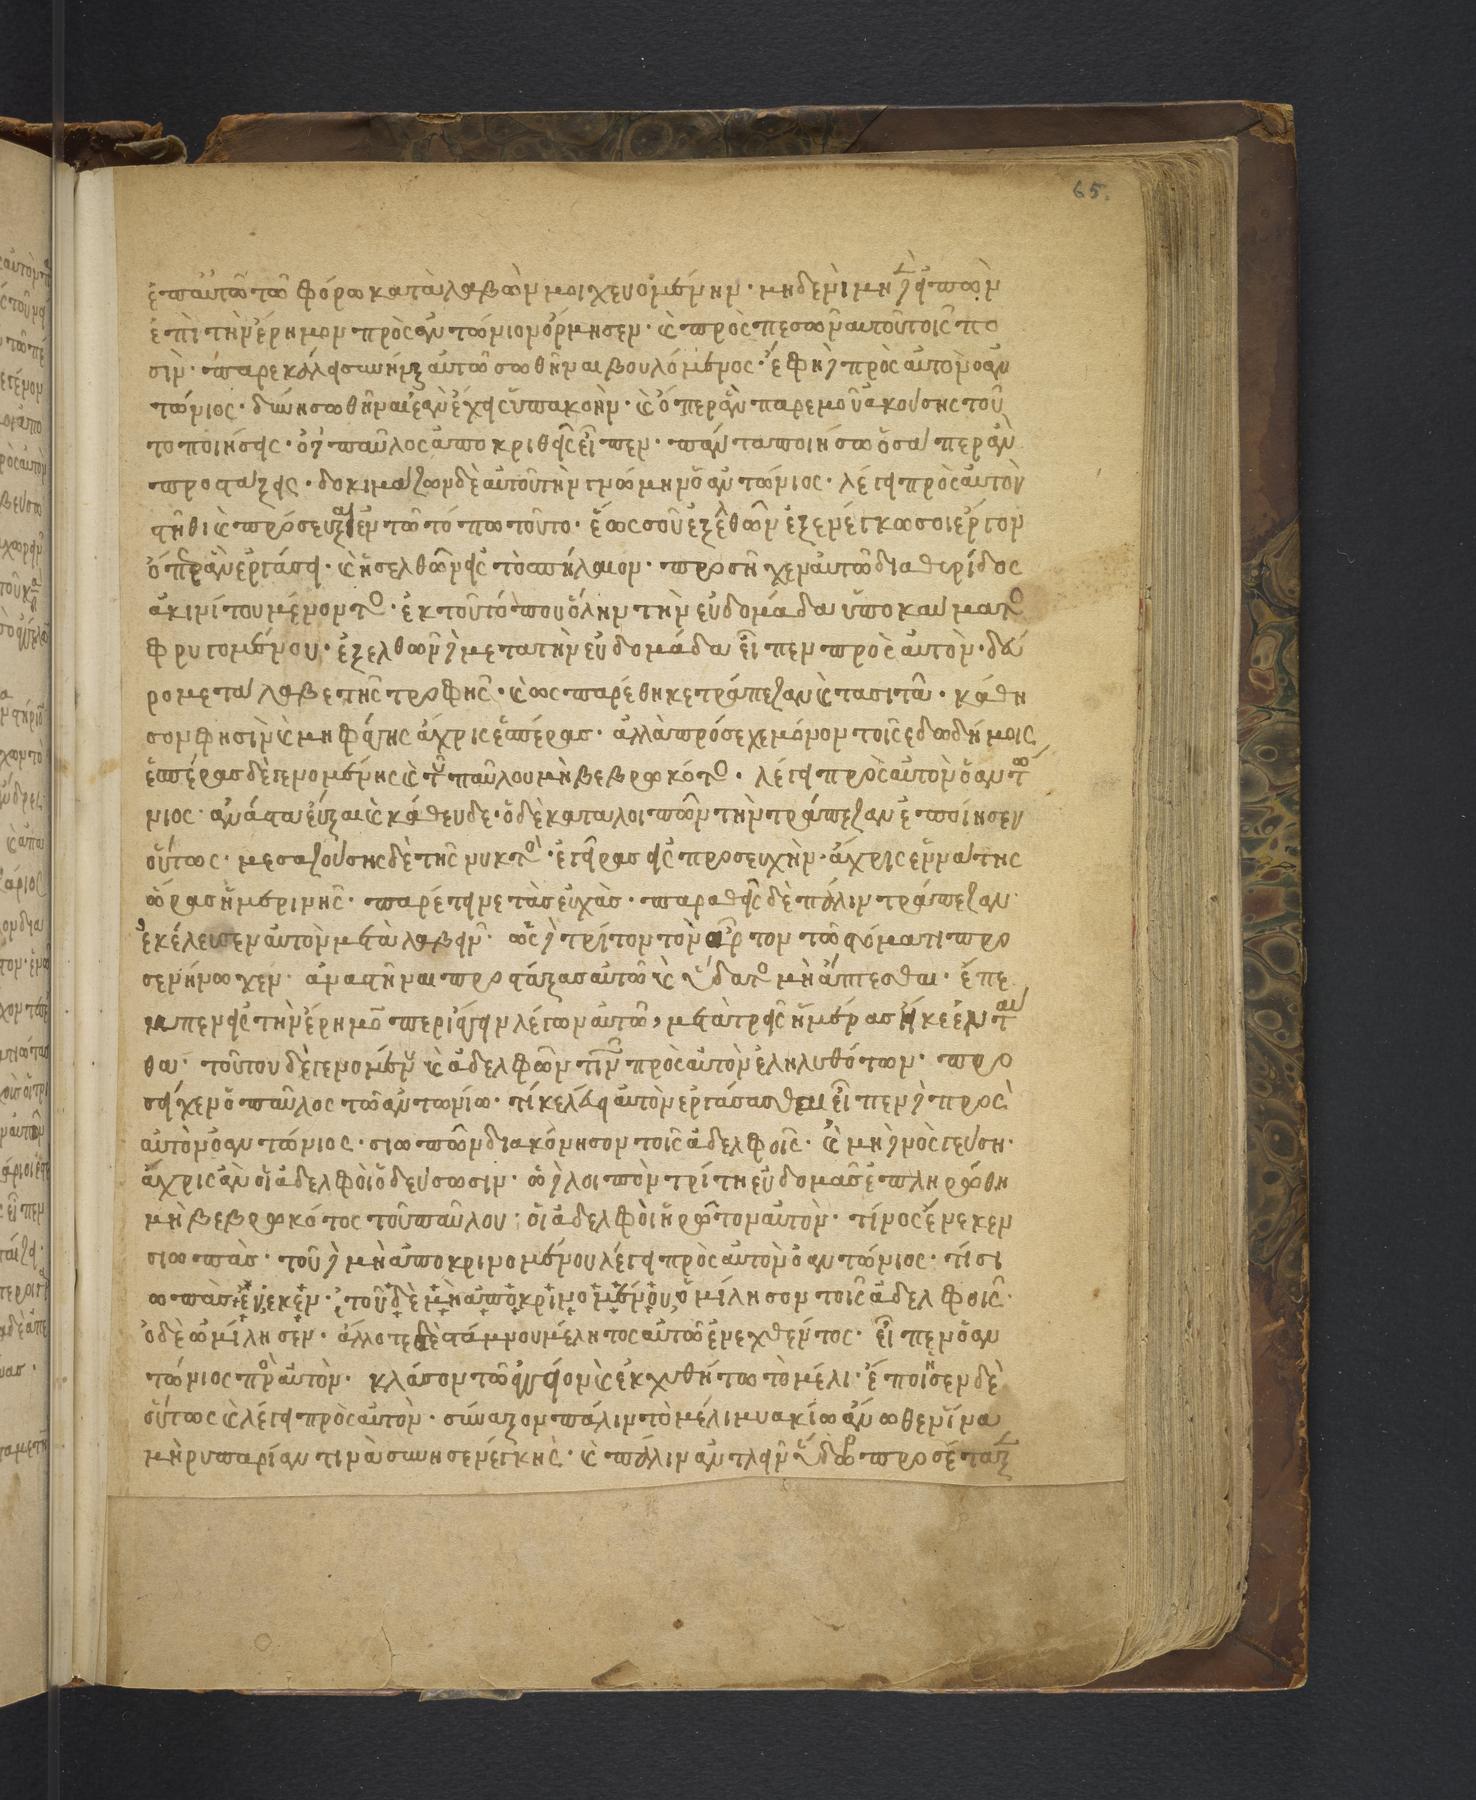 65.
ἐπαυτῶ τῶ φόρω καταλαβὼν μοιχευομένην · μηδενὶ μηδὲν εἰπὼν
ἐπὶ τὴν ἔρημον πρὸς ἀντώνιον ὅρμησεν · καὶ προσπεσὼν αὐτοῦ τοῖς πο
σὶν · παρεκάλει συνεῖναι αὐτῶ σωθῆναι βουλόμενος · ἔφη δὲ πρὸς αὐτὸν ὁ ἀν
τώνιος · δύνη σωθῆναι ἐὰν ἔχεις ὑπακοὴν · καὶ ὅπερ ἂν παρ ἐμοῦ ἀκούσης τοῦ
το ποιήσεις · ὁ δὲ παῦλος ἀποκριθεὶς εἶπεν · πάντα ποιήσω ὅσα περ ἂν
προστάξεις · δοκιμάζων δὲ αὐτοῦ τὴν γνώμην ὁ ἀντώνιος · λέγει πρὸς αὐτὸν
στῆθι καὶ πρόσευξαι ἐν τῶ τόπω τοῦτο · ἕως οὗ ἐξελθὼν ἐξενέγκω σοι ἔργον
ὅπερ ἂν ἐργάσει · καὶ εἰσελθὼν εἰς τὸ σπήλαιον · προσεῖχεν αὐτῶ διὰ θυρίδος
ἀκινίτου μένοντος · ἐκ τοῦ τόπου ὅλην τὴν ἑυδομάδα ὑπὸ καύματος
φρυγομένου · ἐξελθὼν δὲ μετὰ τὴν ἑυδομάδα εἶπεν πρὸς αὐτὸν · δεύ
ρο μεταλαβε τῆς τροφῆς · καὶ ὡς παρέθηκε τράπεζαν καὶ τὰ σιτία · κάθη
σον φησὶν καὶ μὴ φάγης ἄχρις ἑσπέρας · ἀλλὰ πρόσεχε μόνον τοῖς ἐδωδήμοις
ἑσπέρας δὲ γενομένης καὶ τοῦ παύλου μὴ βεβρωκότος · λέγει πρὸς αὐτὸν ὁ ἀντώ
νιος · ἀνάστα εὖξαι καὶ κάθευδε · ὁ δὲ καταλοιπὼν τὴν τράπεζαν ἐποίησεν
οὕτως · μεσαζούσης δὲ τῆς νυκτὸς · ἐγείρας εἰς προσευχὴν · ἄχρις ἐννάτης
ὥρας ἡμερινῆς · παρέτεινε τὰς εὐχὰς · παραθεὶς δὲ πάλιν τράπεζαν
ἐκέλευσεν αὐτὸν μεταλαβεῖν · ὡς δὲ τρίτον τὸν ἄρτον τῶ στόματι προ
σενήνωχεν · ἀναστῆναι προστάξας αὐτῶ καὶ ὕδατος μὴ ἅπτεσθαι · ἔπε
μπεν εἰς τὴν ἔρημον περιάγειν λέγων αὐτῶ, μετὰ τρεῖς ἡμέρας ἧκε ἐνταῦ
θα · τούτου δὲ γενομένου καὶ ἀδελφῶν τινῶν πρὸς αὐτὸν ἐληλυθότων · προ
σεῖχεν ὁ παῦλος τῶ ἀντωνίω · τί κελεύει αὐτὸν ἐργάσασθαι εἶπεν δὲ πρὸς
αὐτὸν ὁ ἀντώνιος · σιωπῶν διακόνησον τοῖς ἀδελφοῖς · καὶ μηδενὸς γεύση ·
ἄχρις ἂν οἱ ἀδελφοὶ ὁδεύσωσιν · ὡς δὲ λοιπὸν τρίτη ἑυδομὰς ἐπληρώθη
μὴ βεβρωκότος τοῦ παύλου · οἱ ἀδελφοὶ ἠρώτον αὐτὸν · τίνος ἕνεκεν
σιωπᾶς · τοῦ δὲ μὴ ἀποκρινομένου λέγει πρὸς αὐτὸν ὁ ἀντώνιος · τί σι
ωπᾶς ἕνεκεν · τοῦ δὲ μὴ ἀποκρινομένου, ὁμίλησον τοῖς ἀδελφοῖς ·
ὁ δὲ ὡμίλησεν · ἄλλοτε δὲ στάμνου μέλητος αὐτῶ ἐνεχθέντος · εἶπεν ὁ ἀν
τώνιος πρὸς αὐτὸν · κλάσον τῶ ἀγγεῖον καὶ ἐκχυθήτω τὸ μέλι · ἐποίησεν δὲ
οὕτως καὶ λέγει πρὸς αὐτὸν · σύναξον πάλιν τὸ μέλι μυακίω ἄνωθεν ἵνα
μὴ ρυπαρίαν τινὰ συνησενέγκης · καὶ πάλιν ἀντλεῖν ὕδωρ προσέταξεν